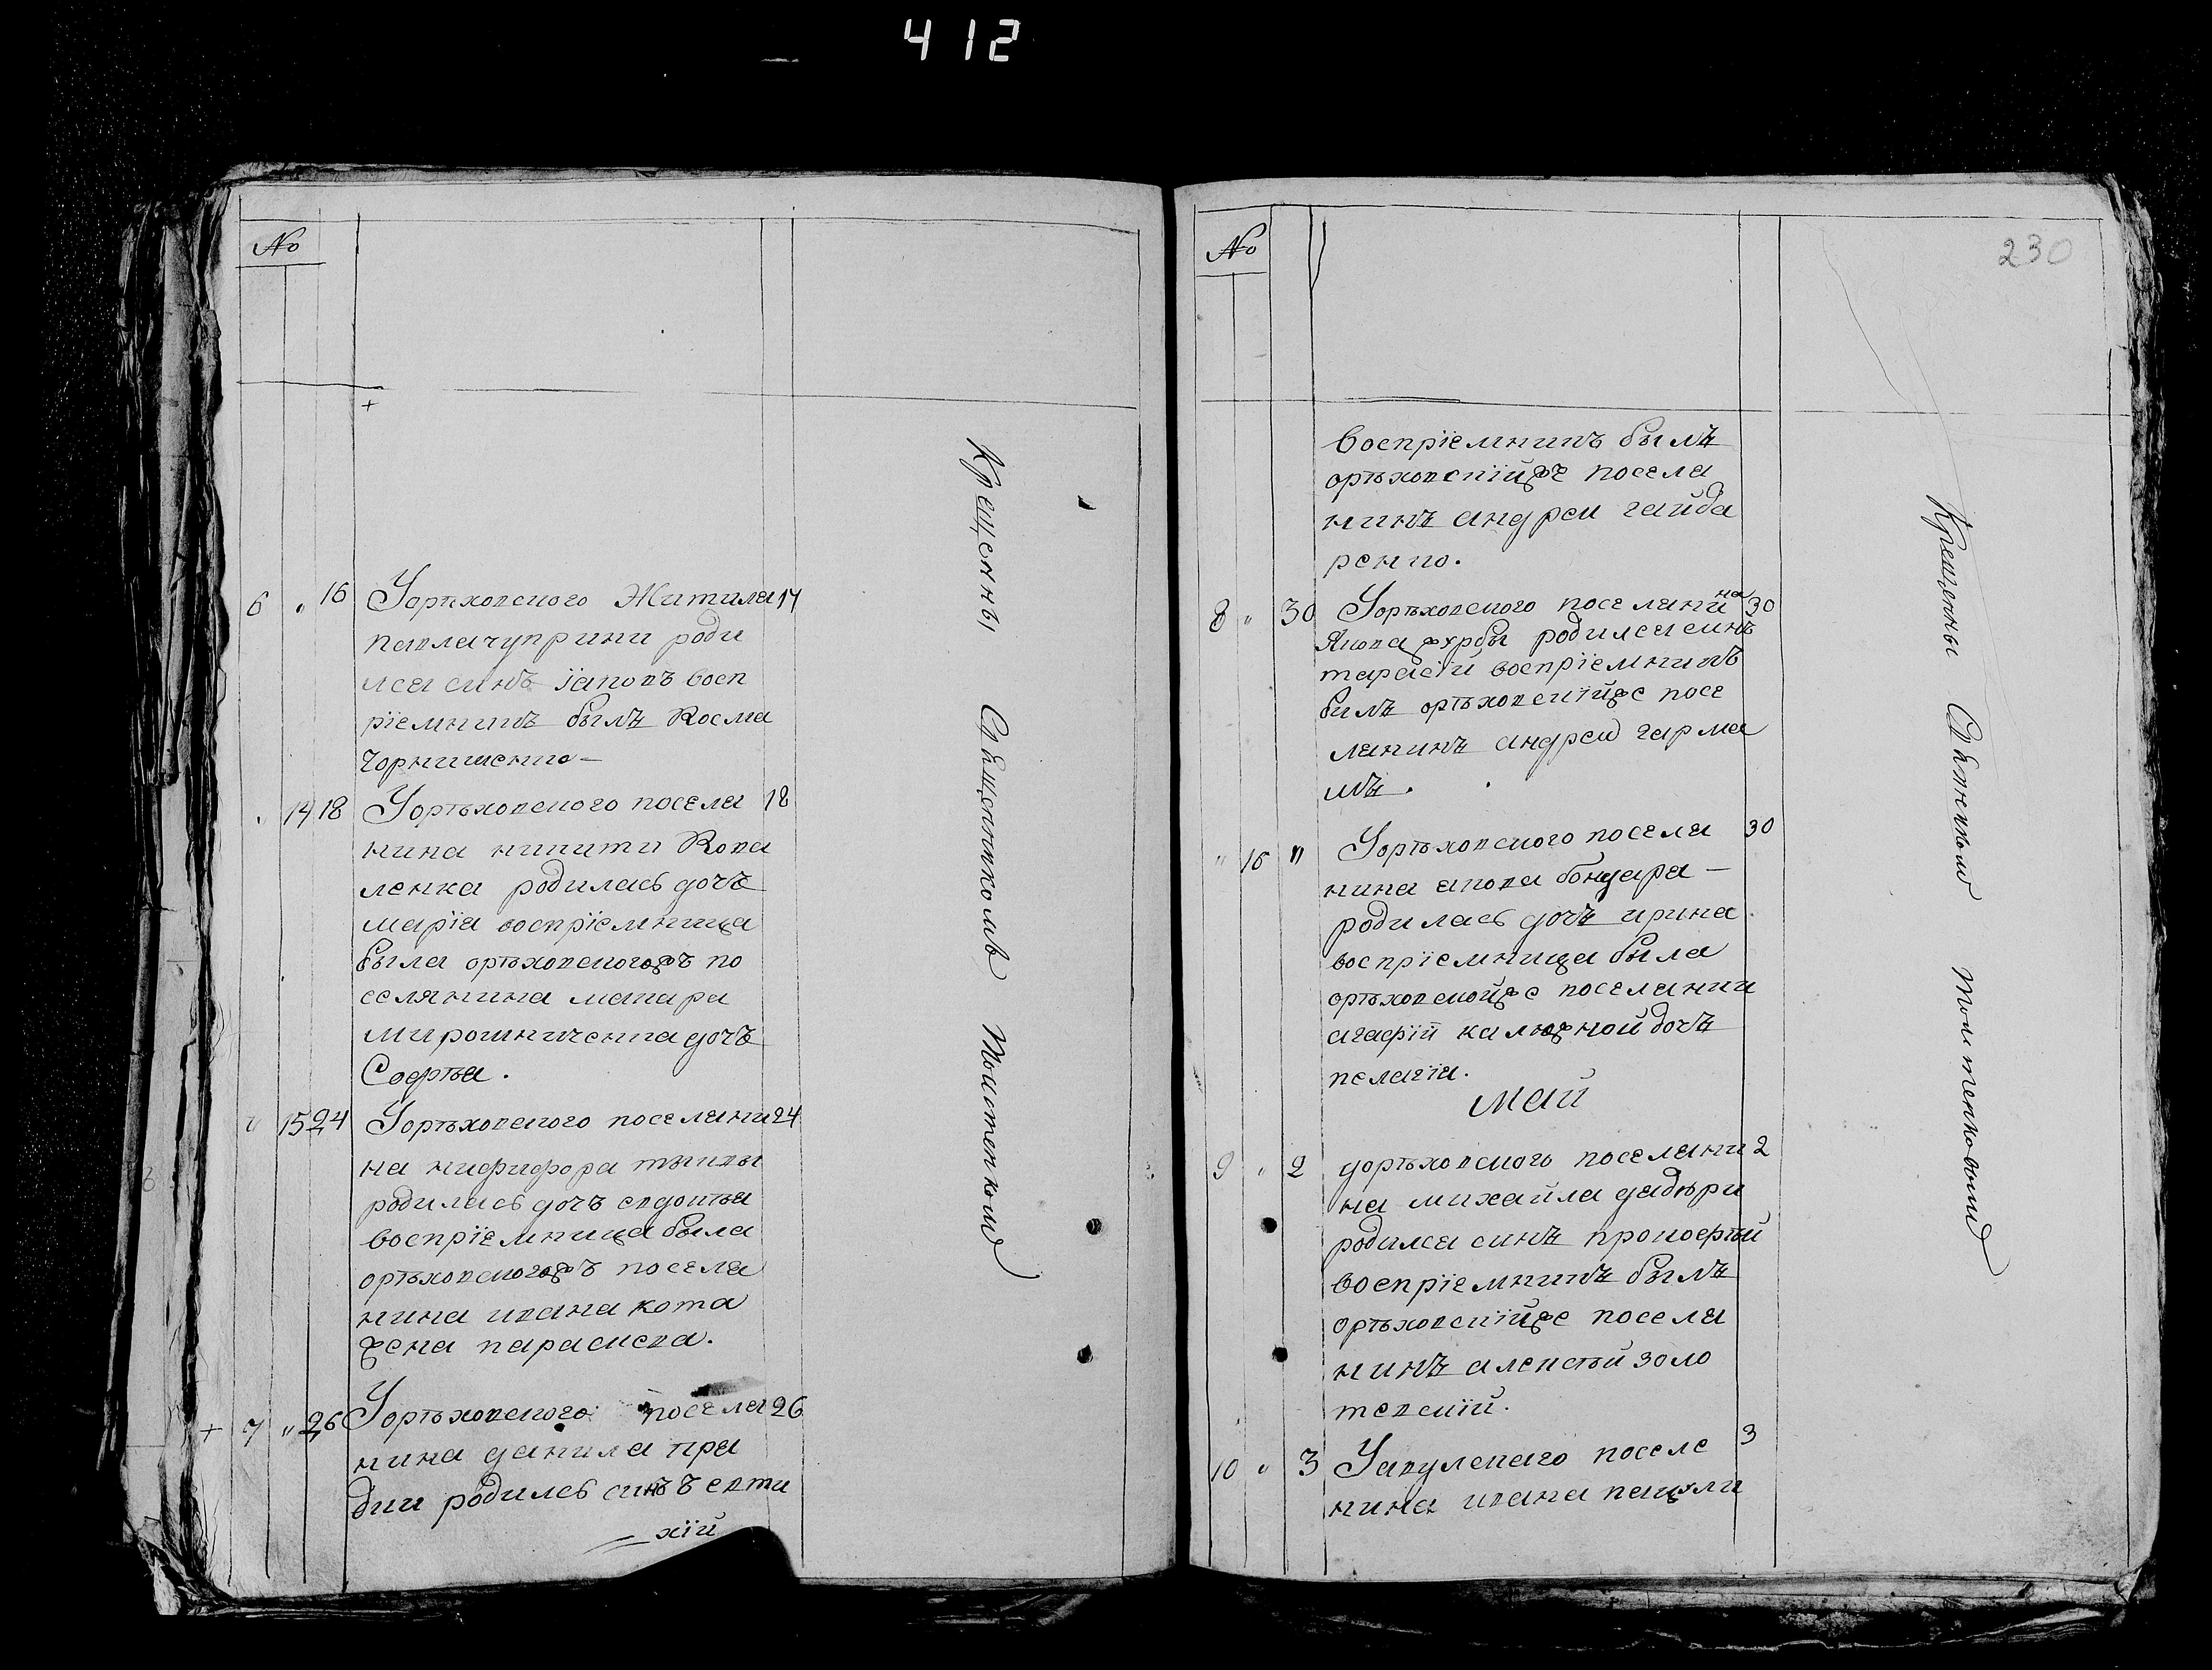 412
№
6 " 16 Уорѣховского Жителя 17
павла чуприни роди
лся синъ іяковъ восп
ріемникъ былъ Косма
Чорнишенко —
" 14 18 Уорѣховского поселя 18
нина никити Кова
ленка родилась дочъ
марія воспріемница
была орѣховскогожъ по
селянина макара
мирошниченка дочъ
Софѣя.
" 15 24 Уорѣховского поселяни 24
на никифора
родилась дочъ евдокѣя
воспріемница была
орѣховскогожъ поселя
нина ивана кота
жена параскева.
+ 7 " 26 Уорѣховского поселя 26
нина данила пря
дки родилсь синъ евти
— хій
Крещенны Священникомъ Моистенкомъ
№
230
воспріемникъ былъ
орѣховскійже поселя
нинъ андреи гайда
ренко.
8 " 30 Уорѣховского поселянина 30
Якова журбы родился синъ
тарасій воспріемникъ
билъ орѣховскійже посе
лянинъ андреи гарма
шъ.
" 16 " Уорѣховского поселя 30
нина якова бондара —
родилась дочъ ирина
воспріемница была
орѣховскойже поселянки
агафій калюжной дочъ
пелагія.
Май
9 " 2 уорѣховского поселяни 2
на михайла
родился синъ прокофѣй
воспріемникъ былъ
орѣховскійже поселя
нинъ алексѣй золо
тевскій.
10 " 3 поселе 3
нина ивана
Крещенны Священникомъ